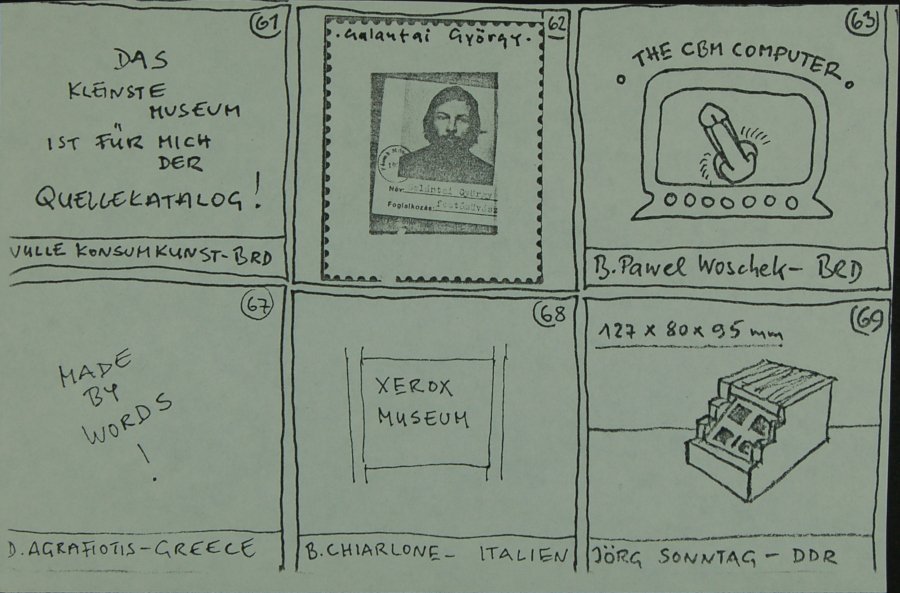 61
DAS
KLEINSTE
MUSEUM
IST FÜR MICH
DER
QUELLEKATALOG!
VULLE KONSUMKUNST-BRD
62
·Galantai György·
Név: Galántai György
Foglalkozás: festőművész
63
· THE CBM COMPUTER ·
B. Pawel Woschek - BRD
67
MADE
BY
WORDS
!
D. AGRAFIOTIS-GREECE
68
XEROX
MUSEUM
B. CHIARLONE- ITALIEN
69
127 x 80 x 95 mm
JÖRG SONNTAG - DDR